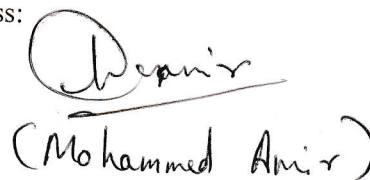 ss:
(Mohammed Amir)